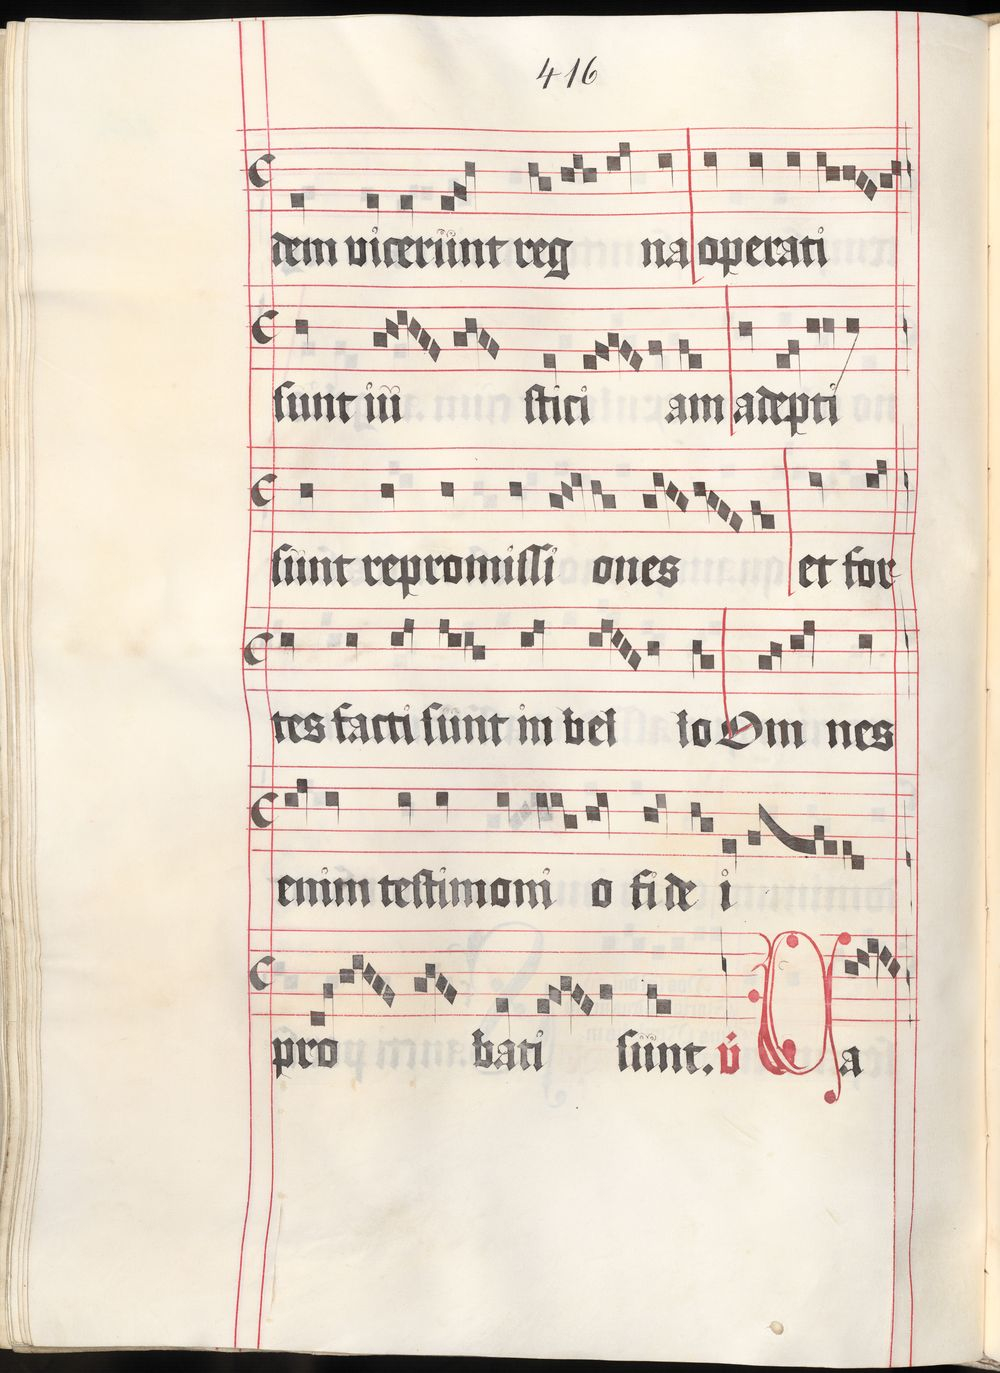 416
dem vicerunt reg na operati
sunt iu stici am adepti
sunt repromissi ones et for
tes facti sunt in bel lo Om nes
enim testimoni o fide i
pro bati sunt. v̇ Va